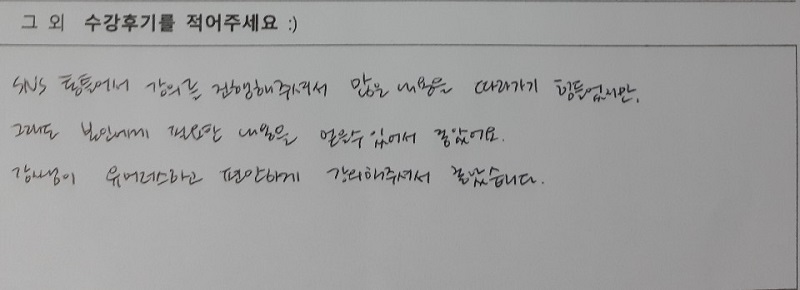 그 외 수강후기를 적어주세요 :)
SNS 활동에서 강의를 진행해주셔서 많은 내용을 따라가기 힘들었지만,
그래도 본인에게 필요한 내용을 얻을수 있어서 좋았어요.
강사님이 유머러스하고 편안하게 강의해주셔서 좋았습니다.